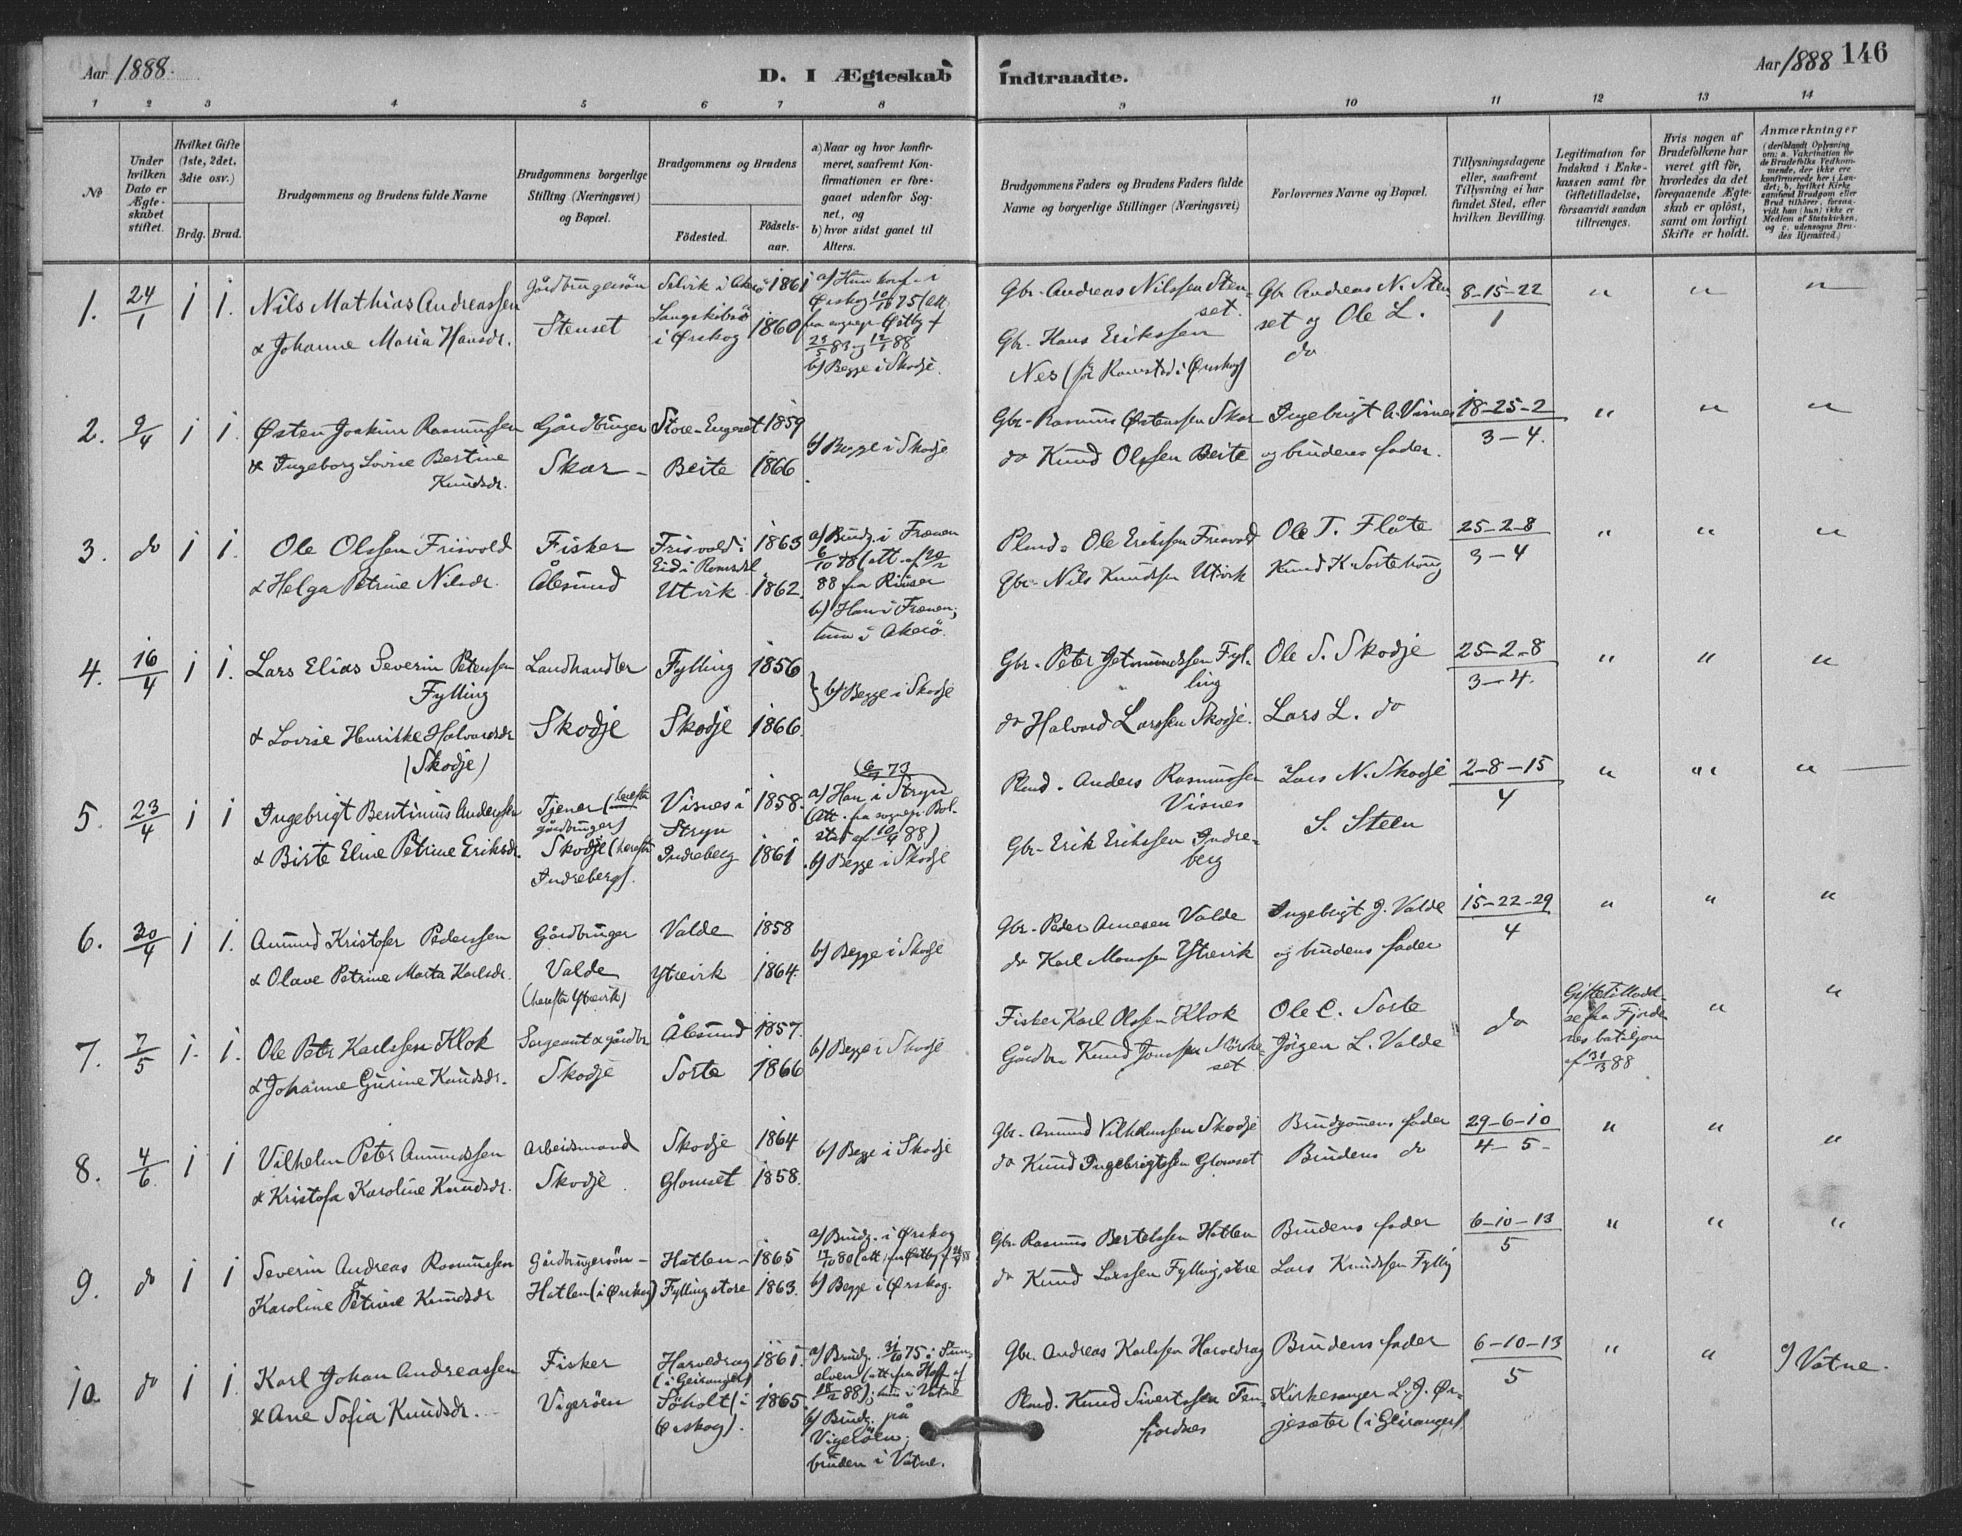 Aar 1888.
D. I Ægteskab
Indtraadte.
Aar 1888
146
1 2 3 4 5 6 7 8 9 10 11 12 13 14
№
Under hvilken Dato er Ægteskabet stiftet.
Hvilket Gifte (1ste, 2det, 3die osv.)
Brdg. Brud.
Brudgommens og Brudens fulde Navne
Brudgommens borgerlige Stilling (Næringsvei) og Bopæl.
Brudgommens og Brudens
Fødested.
Fødselsaar.
a) Naar og hvor konfirmeret, saafremt Konfirmationen er foregaaet udenfor Sognet, og
b) hvor sidst gaaet til Alters.
Brudgommens Faders og Brudens Faders fulde Navne og borgerlige Stillinger (Næringsvei)
Forlovernes Navne og Bopæl.
Tillysningsdagene eller, saafremt Tillysning ei har fundet Sted, efter hvilken Bevilling.
Legitimation for Indskud i Enkekassen samt for Giftetilladelse, forsaavidt saadan tiltrænges.
Hvis nogen af Brudefolkene har været gift før, hvorledes da det foregaaende Ægteskab er opløst, samt om lovligt Skifte er holdt.
Anmærkninger
1. 24/1 1 1. Nils Mathias Andreassen
& Johanne Maria Hansdr.
Gårdbrugersön
Stenset
Selvik i Akerö 1861
Langskibsö i Ørskog 1860
a) Hun konf. i Ørskog
b) Begge i Skodje.
Gbr. Andreas Nilssen Stenset.
Gbr. Hans Erikssen
Nes (för Ramstad i Ørskog)
Gbr Andreas N. Stenset og Ole L. do
8-15-22/1
" " "
2. 9/4 1 1. Østen Joakim Rasmussen
& Ingeborg Lovise Bertine Knudsdr.
Gårdbruger
Skar -
Store-Engeset 1859
Beite 1866
b) Begge i Skodje
Gbr. Rasmus Østenssen Skar
do Knud Olssen Beite
Ingebrigt A. Visnes
og brudens fader.
18-25-2/3-4.
" " "
3. do 1 1. Ole Olssen Frisvold
& Helga Petrine Nilsdr.
Fisker
Ålesund
Frisvold i Eid i Romsdal 1863
Utvik 1862.
a) Brudg. i Frænen
6/10 78 (att. af 20/2
88 fra
b) Han i Frænen;
hun i Akerö.
Plmd. Ole Erikssen Frisvold
Gbr. Nils Knudsen Utvik
Ole T. Flåte
Knud K. Sortehoug
25-2-8/3-4
" " "
4. 16/4 1 1. Lars Elias Severin Petersen
Fylling
& Lovise Henrikke Halvardsdr
(Skodje)
Landhandler
Skodje
Fylling 1856
Skodje 1866.
b) Begge i Skodje
Gbr. Peter Jetmundssen Fylling
do Halvard Larssen Skodje.
Ole S. Skodje
Lars L. do
25-2-8/3-4.
" " "
5. 23/4 1 1 Ingebrigt Bentinius Anderssen
& Birte Eline Petrine Eriksdr.
Tjener (herefter gårdbruger)
Skodje (herefter
Indreberg).
Visnes i Stryn 1858.
Indreberg 1861
a) Han i Stryn
(Att. fra sognepr. Bolstad af 10/4 88)
b) Begge i Skodje
Plmd. Anders Rasmussen
Visnes
Gbr. Erik Erikssen Indreberg
Lars N. Skodje
S. Steen
2-8-15/4
" " "
6. 30/4 1 1. Amund Kristofer Pederssen
& Olave Petrine Marta Karlsdr.
Gårdbruger
Valde
(herefter Ytrevik)
Valde 1858
Ytrevik 1864.
b) Begge i Skodje
Gbr. Peder Arnesen Valde
do Karl Monssen Ytrevik
Ingebrigt J. Valde
og brudens fader
15-22-29/4
" " "
7. 7/5 1. 1. Ole Peter Karlssen Klok
& Johanne Gurine Knudsdr.
Sergeant & gårdbr
Skodje
Ålesund 1857.
Sorte 1866
b) Begge i Skodje
Fisker Karl Olssen Klok
Gårdbr. Knud Jonssen
Ole C. Sorte
Jörgen L. Valde
do
Giftetilladelse fra Fjordenes bataljon
af 31/3 88
" "
8. 4/6 1 1 Vilhelm Peter Amundssen
& Kristofa Karoline Knudsdr.
Arbeidsmand
Skodje
Skodje 1864
Glomset 1858.
b) Begge i Skodje
Gbr. Amund Vilhelmssen Skodje
do Knud Ingebrigtssen Glomset
Brudgomens fader
Brudens do
29-6-10/4-5-
" " "
9. do 1 1 Severin Andreas Rasmussen
Karoline Petrine Knudsdr
Gårdbrugersön -
Hatlen (i Ørskog)
Hatlen - 1865
Fylling store 1863.
a) Brudg. i Ørskog
b) Begge i Ørskog.
Gbr. Rasmus Bertelssen Hatlen
do Knud Larssen Fylling, store
Brudens fader
Lars Knudssen Fyllig
6-10-13/5
" " "
10 do 1 1 Karl Johan Andreassen
& Ane Sofia Knudsdr.
Fisker
Vigeröen
Harvedrag (i Geiranger) 1861.
Söholt (i Ørskog). 1865.
a) Brudg.
hun i Vatne
b) Brudg. på
Vigeröen;
bruden i Vatne.
Gbr. Andreas Karlssen Harvedrag
Plmd. Knud Sivertssen Tenfjordnes
Brudens fader
Kirkesanger L. J. Ørjesæter (i Geiranger).
6-10-13/5
" " c) Vatne.